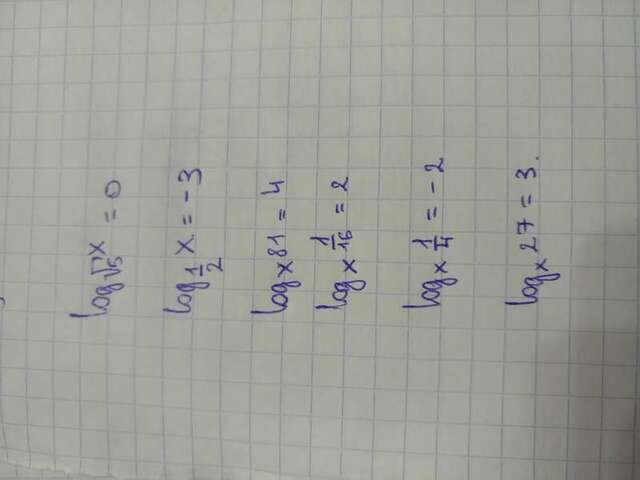 log√5 x = 0
log1/2 x = -3
logx 81 = 4
logx 1/16 = 2
logx 1/4 = -2
logx 27 = 3.